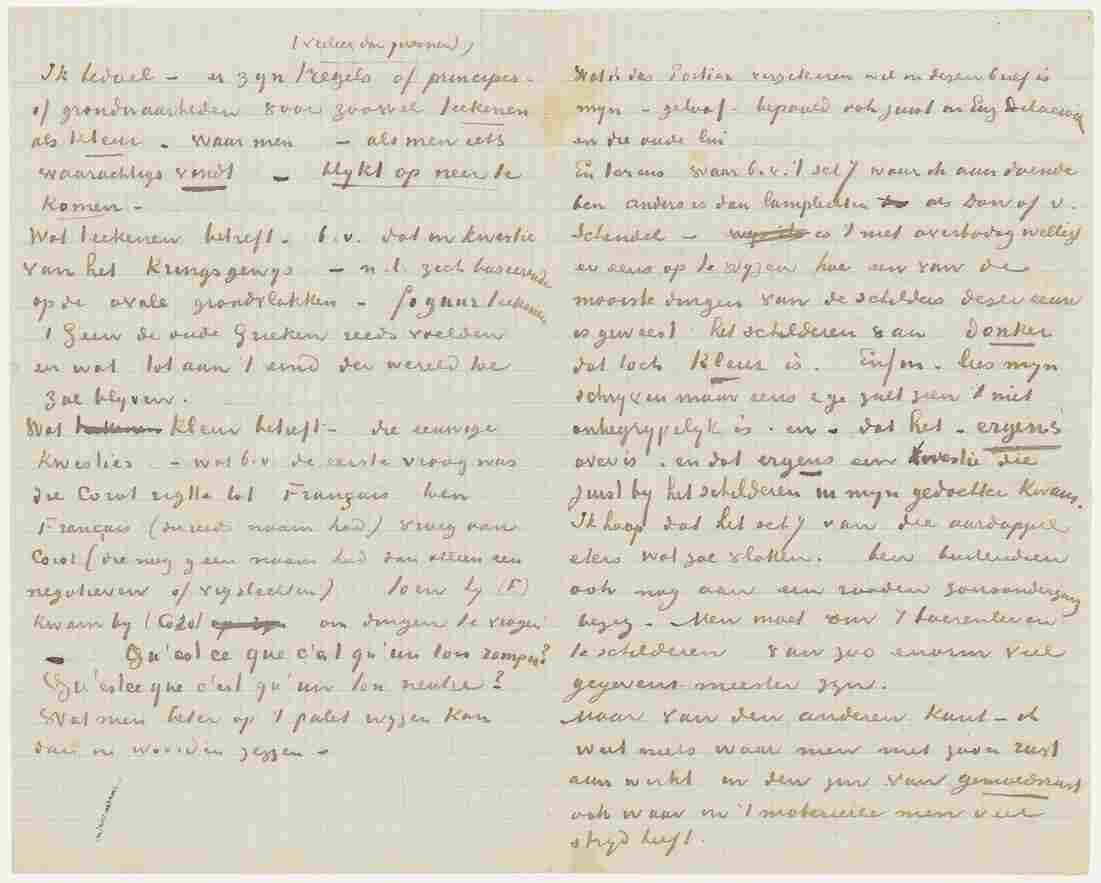 (verder dan gewoned)
Ik bedoel – er zyn Regels of principes –
of grondwaarheden voor zoowel teekenen
als kleur – waar men – als men iets
waarachtigs vindt – blykt op neer te
komen –
Wat teekenen betreft – b.v. dat in kwestie
van het Kringsgewys – n.l. zich baseerende
op de ovale grondvlakken – figuur teekenen
't Geen de oude Grieken reeds voelden
en wat tot aan 't eind der wereld toe
zoo blyven.
Wat kleur betreft – die eeuwige
kwesties – wat b.v. de eerste vraag was
die Corot rigtte tot Français toen
Français (die reeds naam had) vroeg aan
Corot (die nog geen naam had dan alleen een
negatieven of vry slechten) toen hy (F)
kwam by Corot om dingen te vragen
– Qu'est ce que c'est qu'un ton rompu?
Qu'est ce que c'est qu'un ton neutre?
Wat men beter op 't palet wyzen kan
dan in woorden zeggen –
Wat ik dus Portier verzekeren wil in dezen brief is
myn – geloof – bepaald ook juist in Eug Delacroix
en die oude lui
En tevens waar b.v. 't schy waar ik aan doende
ben anders is dan lamplichten als Dou of v.
Schendel – is 't niet overbodig wellicht
er eens op te wyzen hoe een van de
mooiste dingen van de schilders dezer eeuw
is geweest het schilderen van Donker
dat toch Kleur is. Enfin – lees myn
schryven maar eens & ge zult zien 't niet
onbegrypelyk is – en – dat het – ergens
over is – en dat ergens een kwestie die
juist by het schilderen in myn gedachten kwam.
Ik hoop dat het schy van die aardappel
eters wat zoo vlotten. ben buitendien
ook nog aan een rooden zonsondergang
bezig – Men moet om 't boerenleven
te schilderen van zoo enorm veel
gegevens meester zyn.
Maar van den anderen kant – ik
weet niets waar men met zooveel rust
aan werkt in den zin van gemoedsrust
ook waar in 't materieele men veel
stryd heeft.